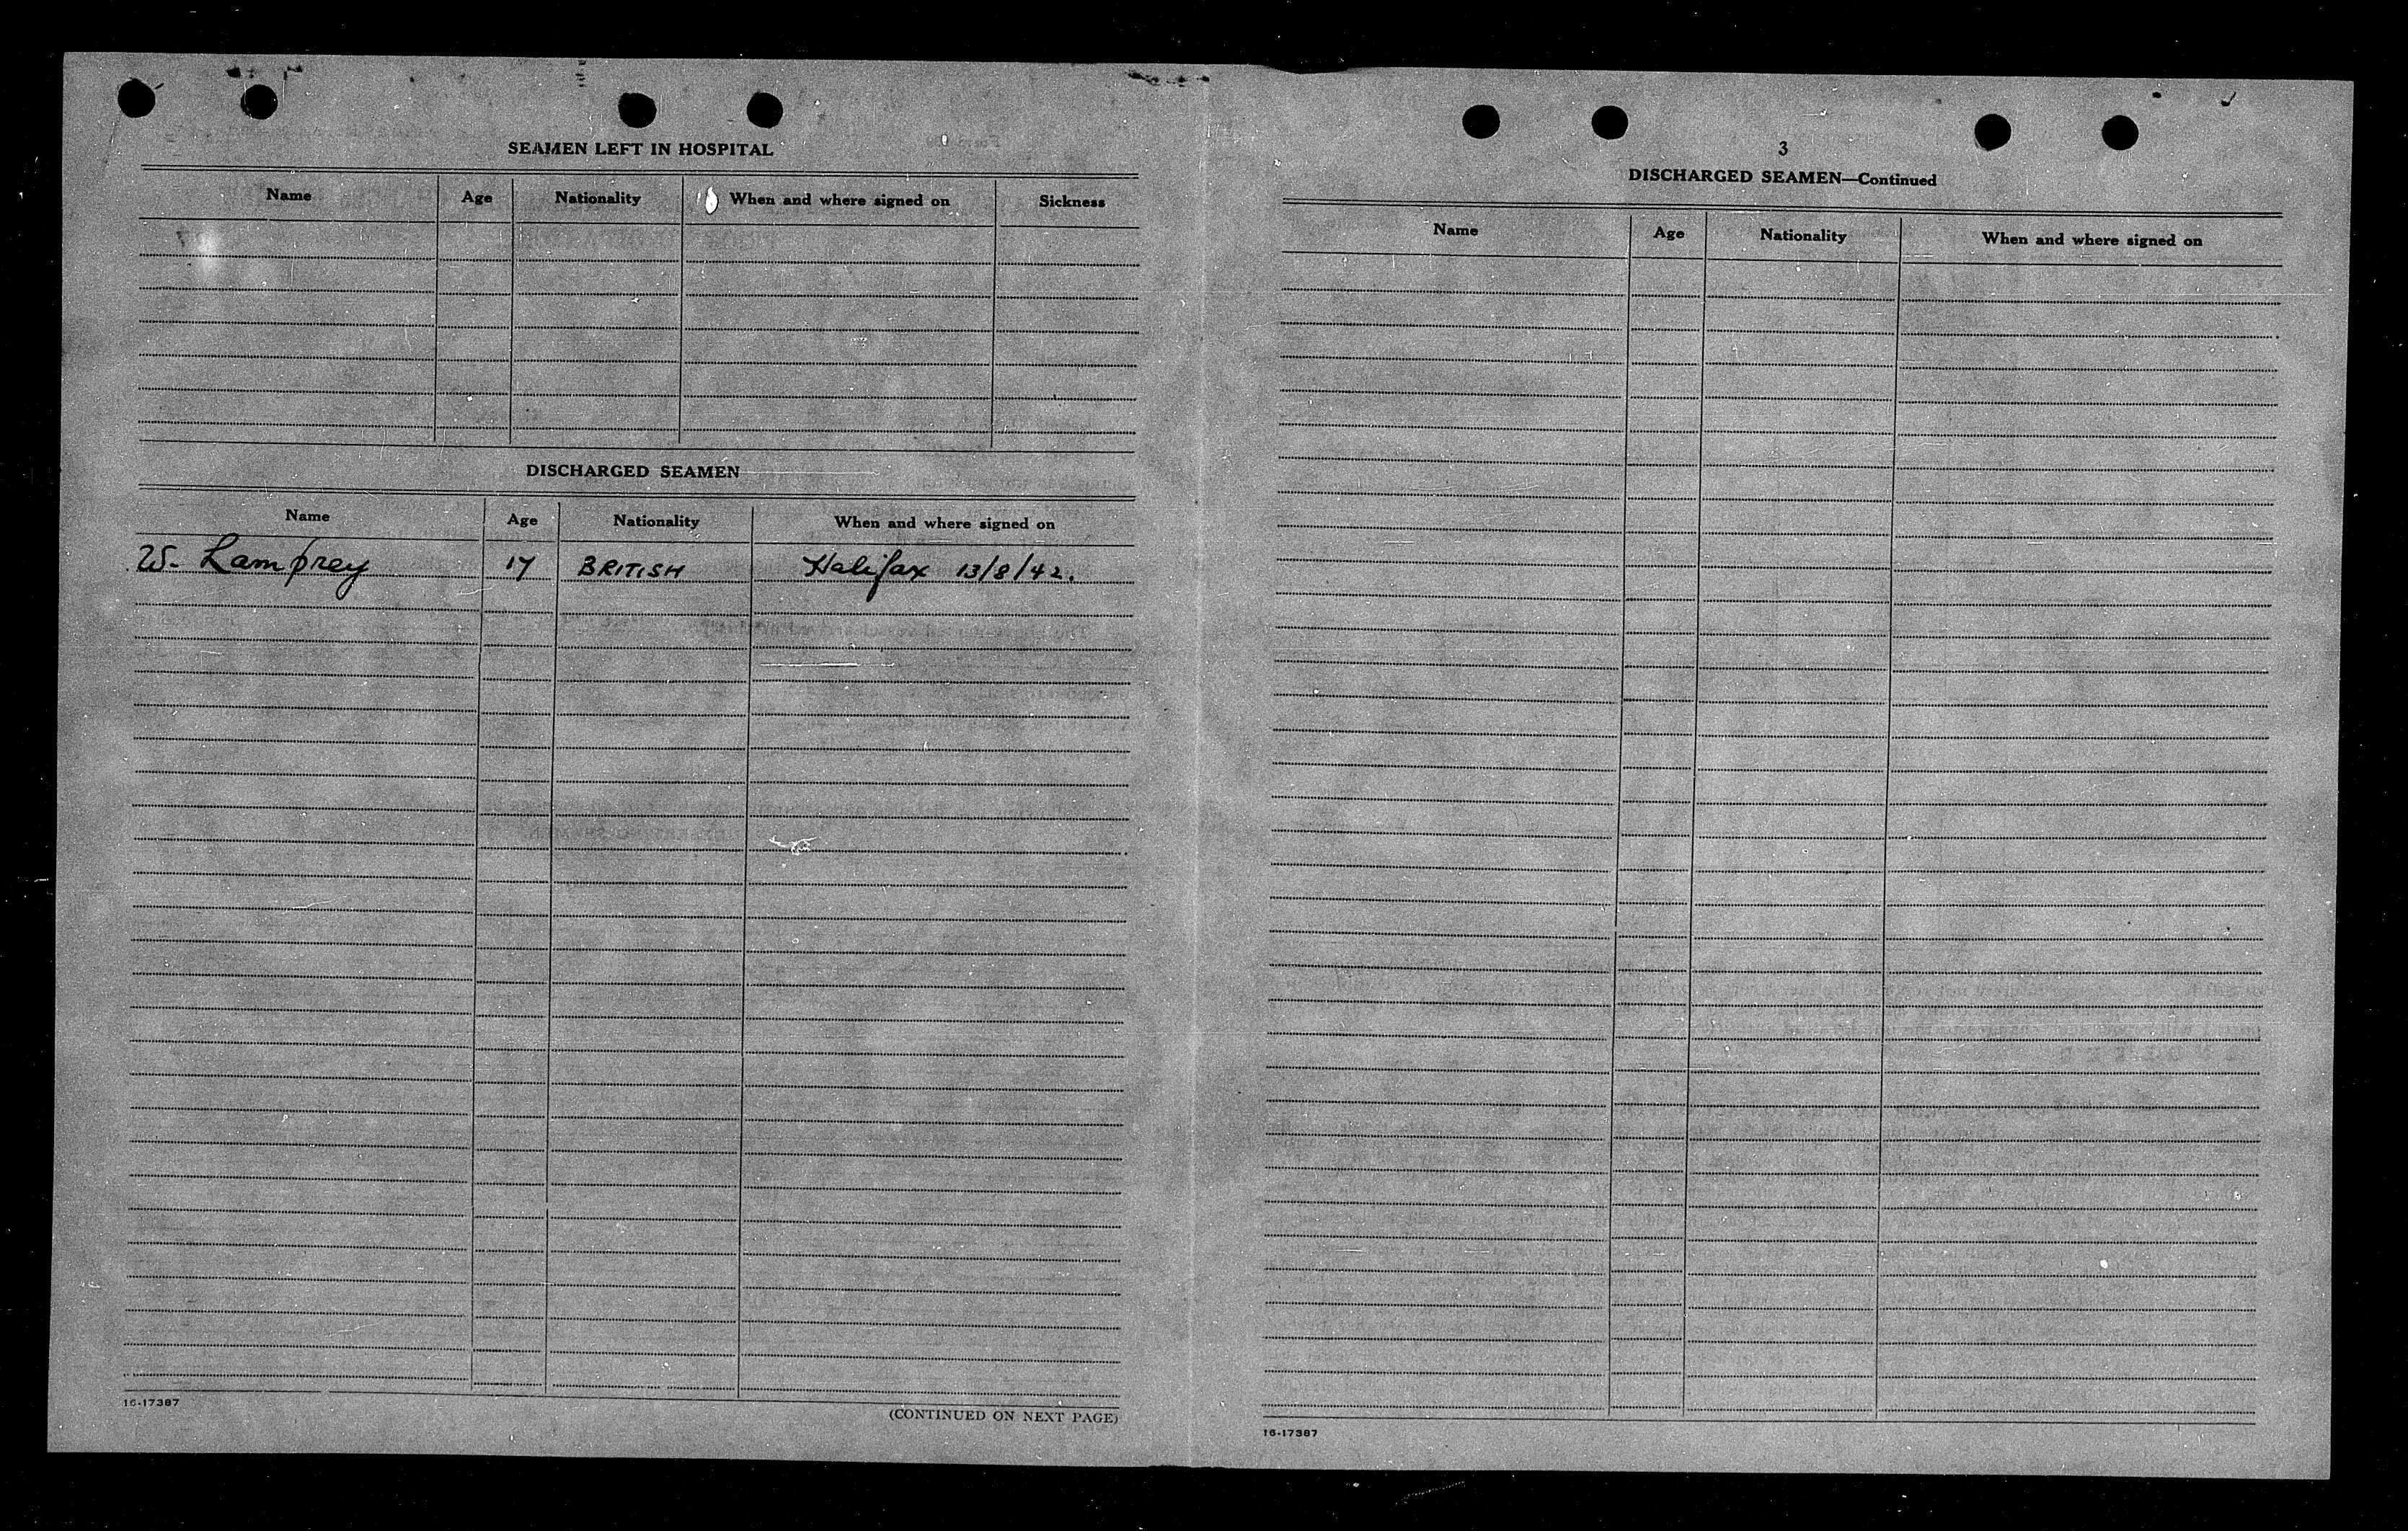 SEAMEN LEFT IN HOSPITAL
Name Age Nationality When and where signed on Sickness
DISCHARGED SEAMEN
Name Age Nationality When and where signed on
W. Lamprey 17 BRITISH Halifax 13/8/42.
16-17387
(CONTINUED ON NEXT PAGE)
3
DISCHARGED SEAMEN—Continued
Name Age Nationality When and where signed on
16-17387